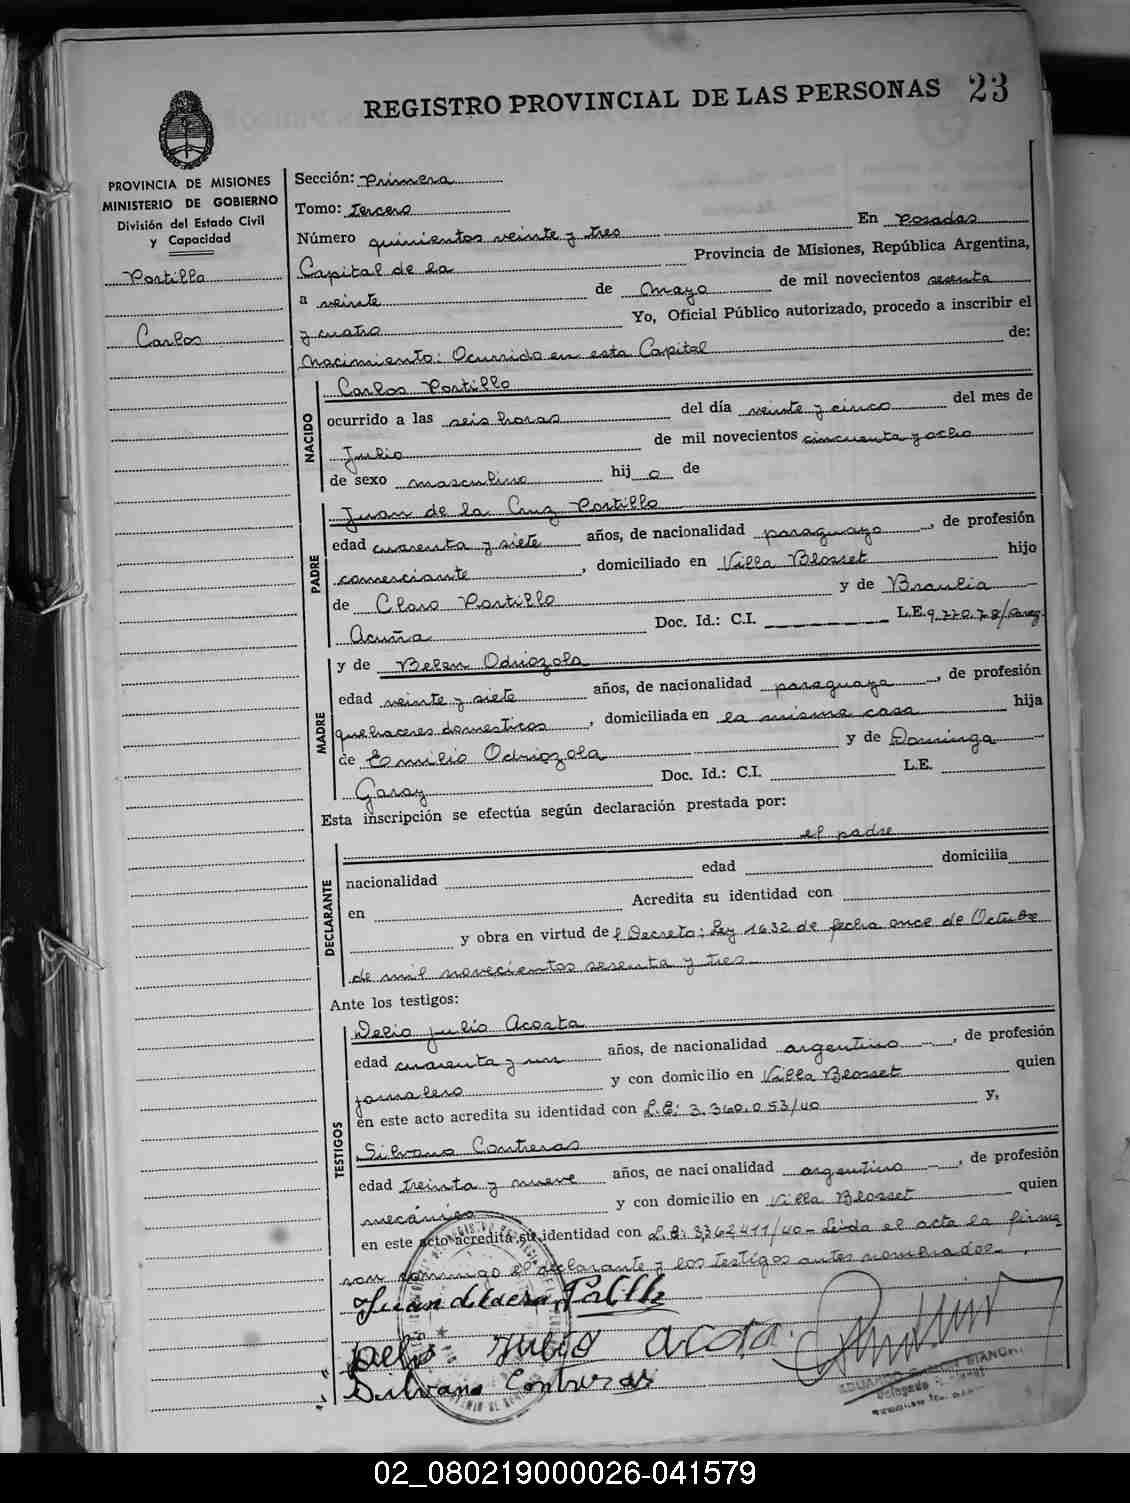 REGISTRO PROVINCIAL DE LAS PERSONAS 23
PROVINCIA DE MISIONES
MINISTERIO DE GOBIERNO
División del Estado Civil
y Capacidad
Portillo
Carlos
Sección: Primera
Tomo: tercero
Número quinientos veinte y tres En Posadas
Capital de la Provincia de Misiones, República Argentina,
a veinte de Mayo de mil novecientos sesenta
y cuatro Yo, Oficial Público autorizado, procedo a inscribir el
Nacimiento: Ocurrido en esta Capital de:
NACIDO
Carlos Portillo
ocurrido a las seis horas del día veinte y cinco del mes de
Julio de mil novecientos cincuenta y ocho
de sexo masculino hij o de
PADRE
Juan de la Cruz Portillo
edad cuarenta y siete años, de nacionalidad paraguayo, de profesión
comerciante, domiciliado en Villa Blosset hijo
de Claro Portillo y de Braulia
Acuña Doc. Id.: C.I. L.E. 9.770.78/Parag.
MADRE
y de Belen Odriozola
edad veinte y siete años, de nacionalidad paraguaya, de profesión
quehaceres domesticos, domiciliada en la misma casa hija
de Emilio Odriozola y de Dominga
Garay Doc. Id.: C.I. L.E.
Esta inscripción se efectúa según declaración prestada por:
DECLARANTE
el padre
nacionalidad edad domicilia
en Acredita su identidad con
y obra en virtud de l Decreto: Ley 1632 de fecha once de Octubre
de mil novecientos sesenta y tres
Ante los testigos:
TESTIGOS
Delio Julio Acosta
edad cuarenta y un años, de nacionalidad argentino, de profesión
jornalero y con domicilio en Villa Blosset quien
en este acto acredita su identidad con L.E: 3.360.053/40 y,
Silvano Contreras
edad treinta y nueve años, de nacionalidad argentino, de profesión
mecánico y con domicilio en Villa Blosset quien
en este acto acredita su identidad con L.E: 3362411/40- Leida el acta la firma
son conmigo el declarante y los testigos antes nombrados.
Juan delacru Portillo
Delio Julio Acosta.
Silvano Contreras
02_080219000026-041579